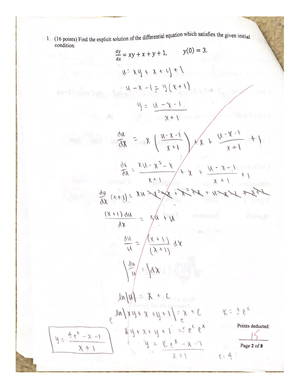 1. (16 points) Find the explicit solution of the differential equation which satisfies the given initial
condition
dy/dx = xy + x + y + 1, y(0) = 3.
u = xy + x + y + 1
u - x - 1 = y(x+1)
y = (u-x-1)/(x+1)
du/dx = x((u-x-1)/(x+1)) + x + (u-x-1)/(x+1) + 1
du/dx = (xu-x²-x)/(x+1) + x + (u-x-1)/(x+1) + 1
(x+1)du/dx = xu + u
du/u = (x+1)/(x+1) dx
∫du/u = ∫dx
ln|u| = x + c
ln|xy+x+y+1| = x + c
xy + x + y + 1 =
y = (4e^x - x - 1)/(x+1)
Points deducted:
15
Page 2 of 8